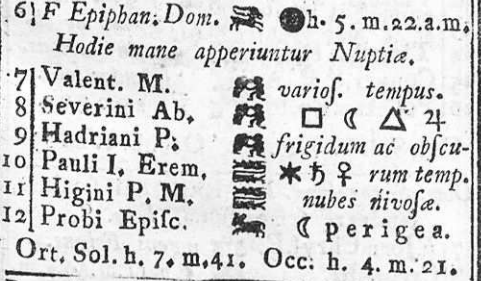 6 F Epiphan. Dom. ● h. 5. m. 22. a. m.
Hodie mane apperiuntur Nuptiæ.
7 Valent. M. varioſ. tempus.
8 Severini Ab. □ ☾ △ ♃
9 Hadriani P. frigidum ac obſcu-
10 Pauli I. Erem. ✶ ♄ ♀ rum temp.
11 Higini P. M. nubes nivoſæ.
12 Probi Epiſc. ☾ perigea.
Ort. Sol. h. 7. m. 41. Occ. h. 4. m. 21.